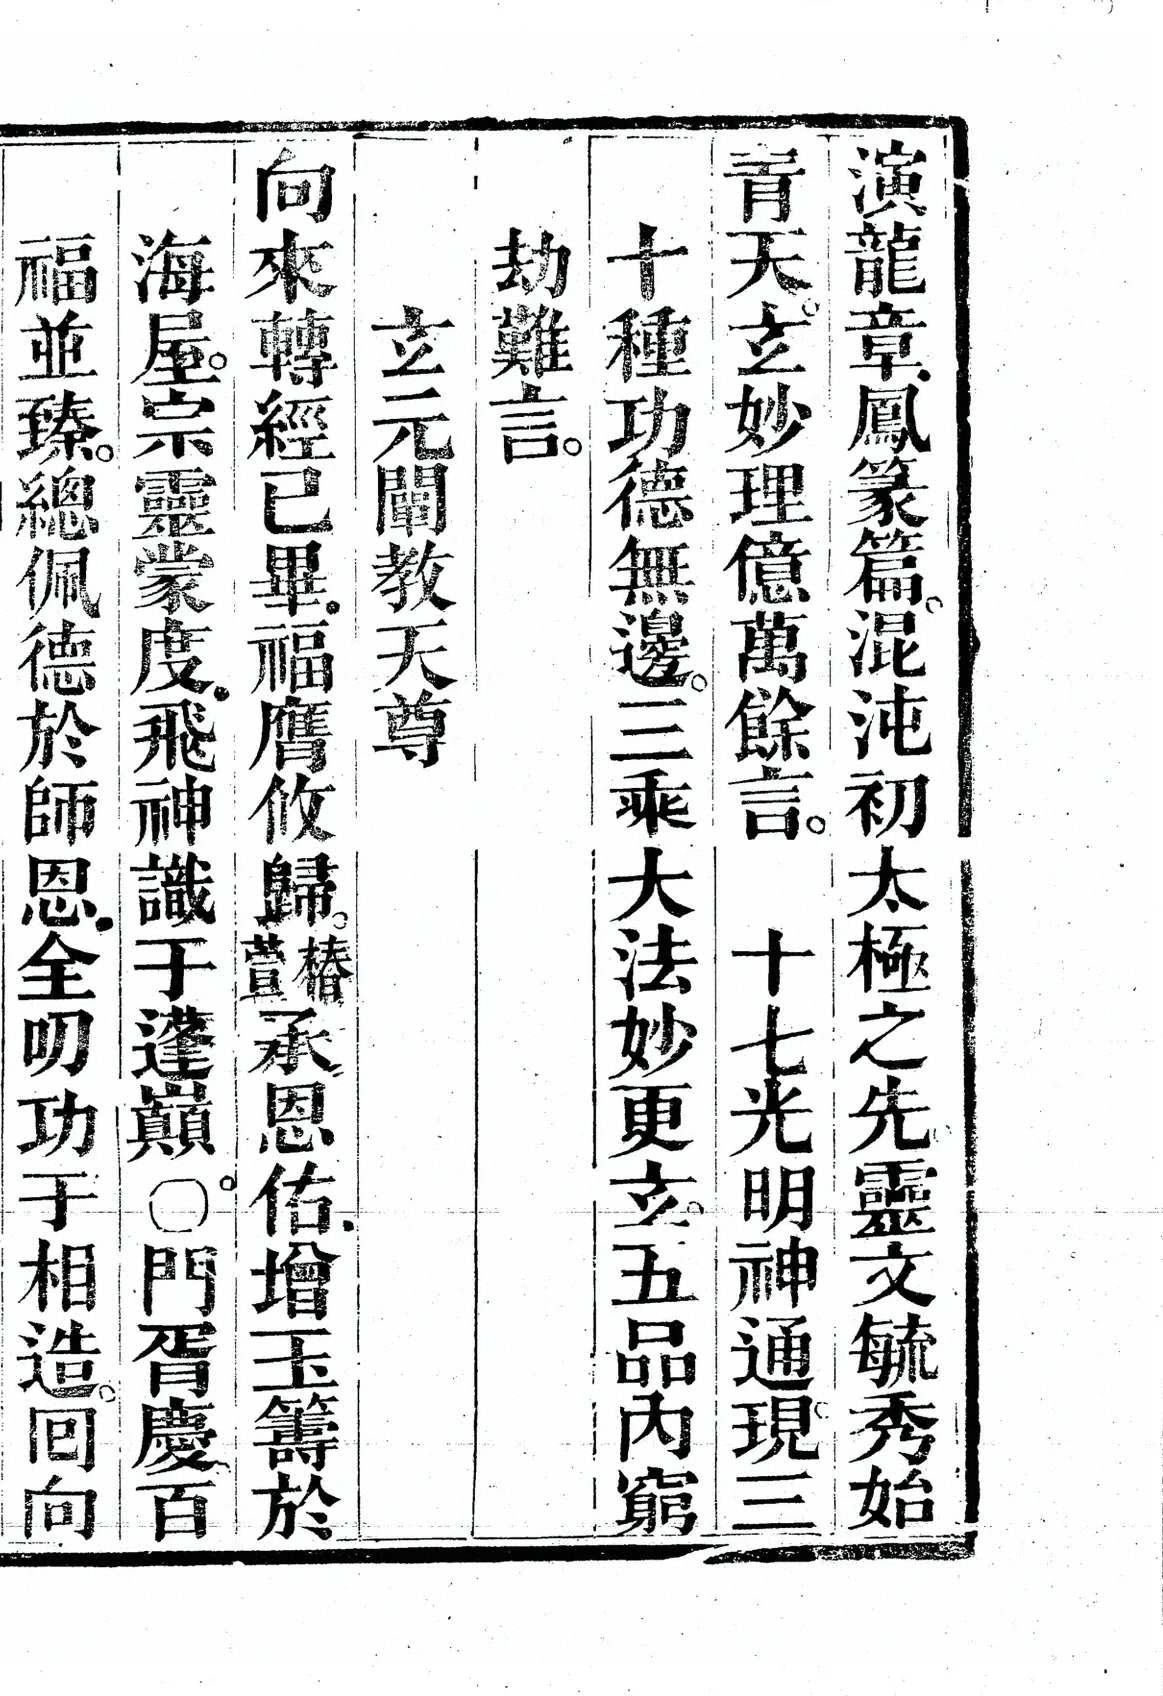 演龍章鳳篆篇。混沌初太極之先靈文毓秀始
青天。玄妙理億萬餘言。　十七光明神通現三
十種功德無邊。三乘大法妙更玄。五品內窮
劫難言。
玄元闡教天尊
向來轉經已畢.福膺攸歸。椿萱承恩佑.增玉籌於
海屋。宗靈蒙度.飛神識于蓬巔。○門胥慶百
福並臻。總佩德於師恩.全叨功于相造。回向